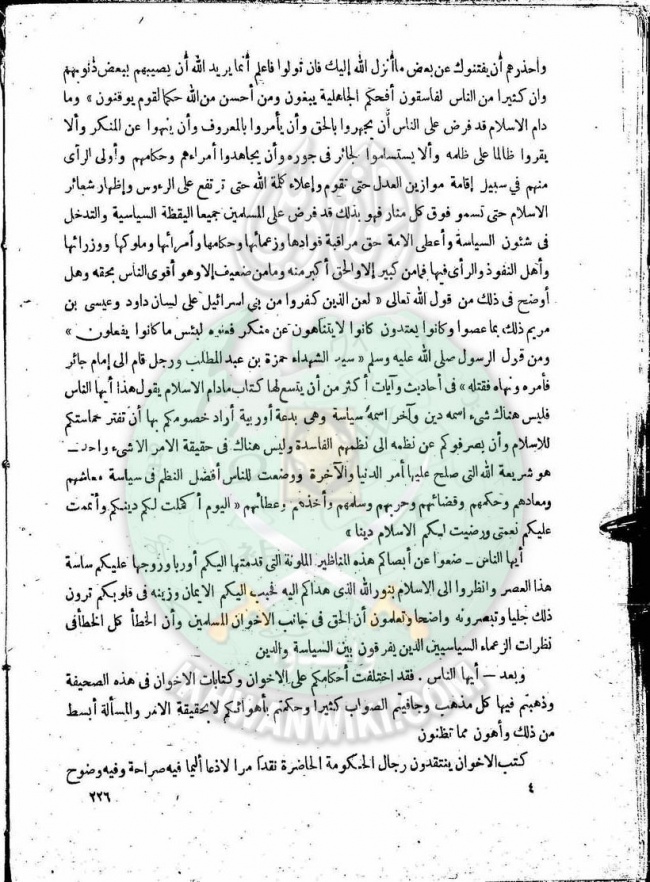 واحذرهم أن يفتنوك عن بعض ما أنزل الله إليك فان تولوا فاعلم أنما يريد الله أن يصيبهم ببعض ذنوبهم
وان كثيرا من الناس لفاسقون أفحكم الجاهلية يبغون ومن أحسن من الله حكما لقوم يوقنون » وما
دام الاسلام قد فرض على الناس أن يجهروا بالحق وأن يأمروا بالمعروف وأن ينهوا عن المنكر وألا
يقروا ظالما على ظلمه وألا يستسلموا لجائر فى جوره وأن يجاهدوا أمراءهم وحكامهم وأولى الرأى
منهم في سبيل إقامة موازين العدل حتى تقوم وإعلاء كلمة الله حتى ترتفع على الرءوس وإظهار شعائر
الاسلام حتى تسمو فوق كل منار فهو بذلك قد فرض على المسلمين جميعا اليقظة السياسية والتدخل
فى شئون السياسة وأعطى الامة حق مراقبة قوادها وزعمائها وحكامها وأمرائها وملوكها ووزرائها
وأهل النفوذ والرأى فيها فما من كبير إلا والحق أكبر منه وما من ضعيف إلا وهو أقوى الناس بحقه وهل
أوضح فى ذلك من قول الله تعالى « لعن الذين كفروا من بنى اسرائيل على لسان داود وعيسى بن
مريم ذلك بما عصوا وكانوا يعتدون كانوا لا يتناهون عن منكر فعلوه لبئس ما كانوا يفعلون »
ومن قول الرسول صلى الله عليه وسلم « سيد الشهداء حمزة بن عبد المطلب ورجل قام الى إمام جائر
فأمره ونهاه فقتله » فى أحاديث وآيات أكثر من أن يتسع لها كتاب مادام الاسلام يقول هذا أيها الناس
فليس هناك شىء اسمه دين وآخر اسمه سياسة وهى بدعة أوربية أراد خصومكم بها أن تفتر حماستكم
للاسلام وأن يصرفوكم عن نظمه الى نظمهم الفاسدة وليس هناك فى حقيقة الامر الا شىء واحد ــ
هو شريعة الله التى صلح عليها أمر الدنيا والآخرة ووضعت للناس أفضل النظم فى سياسة معاشهم
ومعادهم وحكمهم وقضائهم وحربهم وسلمهم وأخذهم وعطائهم « اليوم أكملت لكم دينكم وأتممت
عليكم نعمتى ورضيت لكم الاسلام دينا »
أيها الناس ــ ضعوا عن أبصاركم هذه المناظير الملونة التى قدمتها اليكم أوربا وروجها عليكم ساسة
هذا العصر وانظروا الى الاسلام بنور الله الذى هداكم اليه فحبب اليكم الايمان وزينه فى قلوبكم ترون
ذلك جليا وتبصرونه واضحا وتعلمون أن الحق فى جانب الاخوان المسلمين وأن الخطأ كل الخطأ فى
نظرات الزعماء السياسيين الذين يفرقون بين السياسة والدين
وبعد ــ أيها الناس . فقد اختلفت أحكامكم على الاخوان وكتابات الاخوان فى هذه الصحيفة
وذهبتم فيها كل مذهب وجافيتم الصواب كثيرا وحكمتم بأهوائكم لا بحقيقة الامر والمسألة أبسط
من ذلك وأهون مما تظنون
كتب الاخوان ينتقدون رجال الحكومة الحاضرة نقدا مرا لاذعا أليما فيه صراحة وفيه وضوح
٤
٢٢٦
IKHWANWIKI.COM